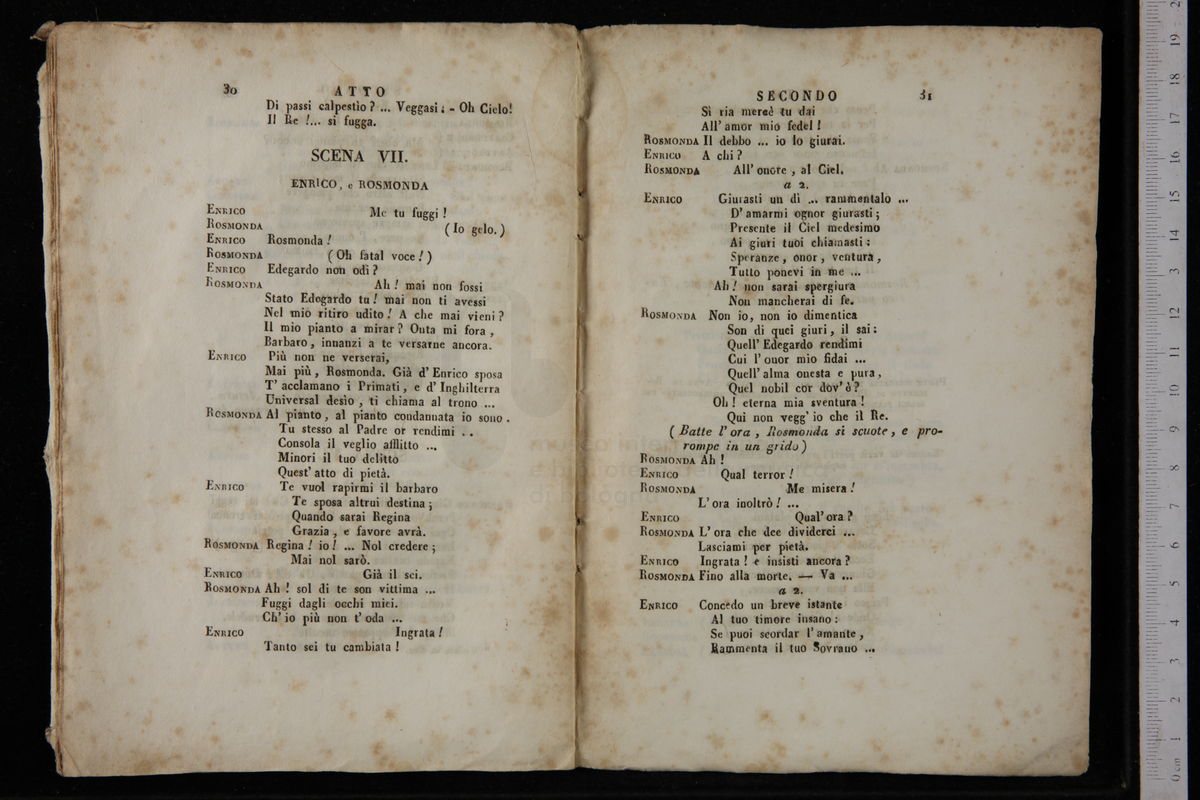 30 ATTO
Di passi calpestio? ... Veggasi: - Oh Cielo!
Il Re !... si fugga.
SCENA VII.
ENRICO, e ROSMONDA
ENRICO Me tu fuggi!
ROSMONDA (Io gelo.)
ENRICO Rosmonda!
ROSMONDA (Oh fatal voce!)
ENRICO Edegardo non odi?
ROSMONDA Ah! mai non fossi
Stato Edegardo tu! mai non ti avessi
Nel mio ritiro udito! A che mai vieni?
Il mio pianto a mirar? Onta mi fora,
Barbaro, innanzi a te versarne ancora.
ENRICO Più non ne verserai,
Mai più, Rosmonda. Già d'Enrico sposa
T'acclamano i Primati, e d'Inghilterra
Universal desio, ti chiama al trono ...
ROSMONDA Al pianto, al pianto condannata io sono.
Tu stesso al Padre or rendimi ..
Consola il veglio afflitto ...
Minori il tuo delitto
Quest'atto di pietà.
ENRICO Te vuol rapirmi il barbaro
Te sposa altrui destina;
Quando sarai Regina
Grazia, e favore avrà.
ROSMONDA Regina! io! ... Nol credere;
Mai nol sarò.
ENRICO Già il sei.
ROSMONDA Ah! sol di te son vittima ...
Fuggi dagli occhi miei.
Ch'io più non t'oda ...
ENRICO Ingrata!
Tanto sei tu cambiata!
SECONDO 31
Sì ria mercè tu dai
All'amor mio fedel!
ROSMONDA Il debbo ... io lo giurai.
ENRICO A chi?
ROSMONDA All'onore, al Ciel.
a 2.
ENRICO Giurasti un dì ... rammentalo ...
D'amarmi ognor giurasti;
Presente il Ciel medesimo
Ai giuri tuoi chiamasti:
Speranze, onor, ventura,
Tutto ponevi in me ...
Ah! non sarai spergiura
Non mancherai di fe.
ROSMONDA Non io, non io dimentica
Son di quei giuri, il sai:
Quell'Edegardo rendimi
Cui l'onor mio fidai ...
Quell'alma onesta e pura,
Quel nobil cor dov'è?
Oh! eterna mia sventura!
Qui non vegg'io che il Re.
(Batte l'ora, Rosmonda si scuote, e pro-
rompe in un grido)
ROSMONDA Ah!
ENRICO Qual terror!
ROSMONDA Me misera!
L'ora inoltrò! ...
ENRICO Qual'ora?
ROSMONDA L'ora che dee dividerci ...
Lasciami per pietà.
ENRICO Ingrata! e insisti ancora?
ROSMONDA Fino alla morte. — Va ...
a 2.
ENRICO Concedo un breve istante
Al tuo timore insano:
Se puoi scordar l'amante,
Rammenta il tuo Sovrano ...